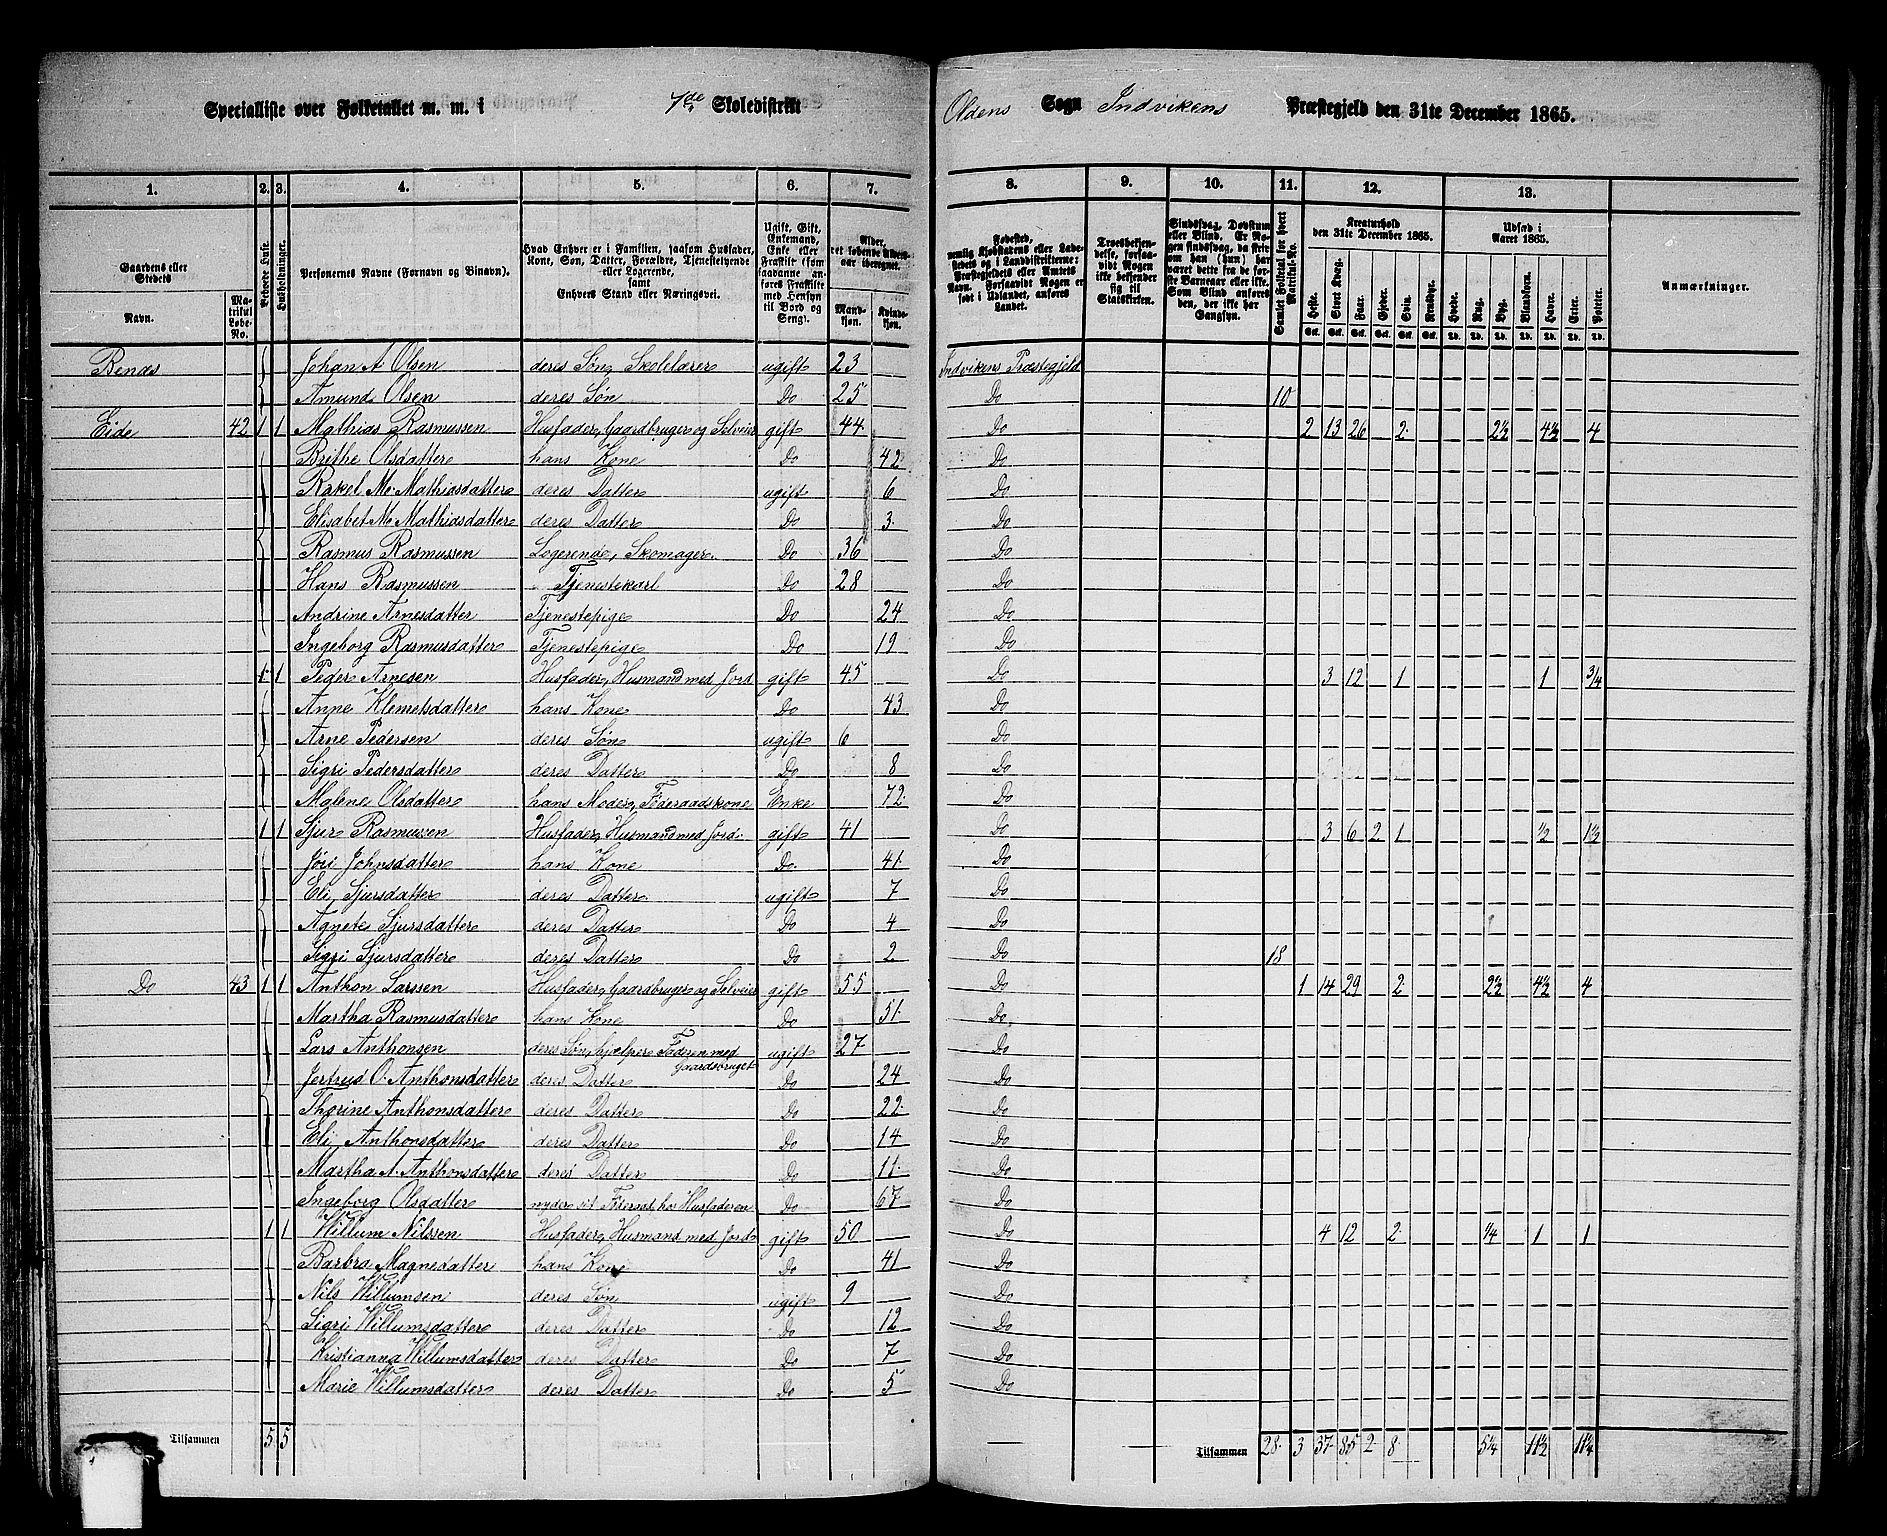 Specialliste over Folketallet m. m. i 7de Skoledistrikt Oldens Sogn Indvikens Præstegjeld den 31te December 1865.
1. 2. 3. 4. 5. 6. 7. 8. 9. 10. 11. 12. 13.
Gaardens eller Stedets
Navn.
Matrikul Løbe-No.
Beboede Huse.
Husholdninger.
Personernes Navne (Fornavn og Binavn).
Hvad Enhver er i Familien, saasom Husfader, Kone, Søn, Datter, Forældre, Tjenestetyende eller Logerende,
samt
Enhvers Stand eller Næringsvei.
Ugift, Gift, Enkemand, Enke eller Fraskilt (som saadanne anføres Fraskilte med Hensyn til Bord og Seng).
Alder, det løbende Alders-aar iberegnet.
Mandkjøn. Kvindekjøn.
Fødested,
nemlig Kjøbstadens eller Ladestedets og i Landdistrikterne: Præstegjeldets eller Amtets Navn. Forsaavidt Nogen er født i Udlandet, anføres Landet.
Troesbekjendelse, forsaavidt Nogen ikke bekjender sig til Statskirken.
Sindssvag, Døvstum eller Blind. Er Nogen sindssvag, da skriv om han (hun) har været dette fra de første Barneaar eller ikke. Som Blind anføres den, der ikke har Gangsyn.
Samlet Folketal for hvert Matrikul-No.
Kreaturhold
den 31te December 1865.
Heste. Stort Kvæg. Faar. Gjeder. Svin. Rensdyr.
Udsæd i
Aaret 1865.
Hvede. Rug. Byg. Blandkorn. Havre. Erter. Poteter.
Anmærkninger.
Bends Johan A Olsen deres Søn, Skolelærer ugift 23 Indvikens Præstegjeld
Amund Olsen deres Søn Do 25 Do 10
Eide 42 1 1 Mathias Rasmussen Husfader, Gaardbruger og Selveier gift 44 Do 2 13 26 2 2½ 4½ 4
Brithe Olsdatter hans Kone Do 42 Do
Rakel M. Mathiasdatter deres Datter ugift 6 Do
Elisabet M Mathiasdatter deres Datter Do 3 Do
Rasmus Rasmussen Logerende, Skomager Do 36 Do
Hans Rasmussen Tjenestekarl Do 28 Do
Andrine Arnesdatter Tjenestepige Do 24 Do
Ingeborg Rasmusdatter Tjenestepige Do 19 Do
1 1 Peder Arnesen Husfader, Husmand med Jord gift 45 Do 3 12 1 1 3/4
Anne Klemetsdatter hans Kone Do 43 Do
Arne Pedersen deres Søn ugift 6 Do
Sigri Pedersdatter deres Datter Do 8 Do
Malene Olsdatter hans Moder, Føderaadskone Enke 72 Do
1 1 Sjur Rasmussen Husfader, Husmand med Jord gift 41 Do 3 6 2 1 ½ 1½
Jøri Johnsdatter hans Kone Do 41 Do
Eli Sjursdatter deres Datter ugift 7 Do
Agnete Sjursdatter deres Datter Do 4 Do
Sigri Sjursdatter deres Datter Do 2 Do 18
Do 43 1 1 Anthon Larssen Husfader, Gaardbruger og Selveier gift 55 Do 1 14 29 2 2½ 4½ 4
Martha Rasmusdatter hans Kone Do 51 Do
Lars Anthonsen deres Søn, hjælper Faderen med Gaardsbruget ugift 27 Do
Jertrud O. Anthonsdatter deres Datter Do 24 Do
Thorine Anthonsdatter deres Datter Do 22 Do
Eli Anthonsdatter deres Datter Do 14 Do
Martha A. Anthonsdatter deres Datter Do 11 Do
Ingeborg Olsdatter nyder sit Føderaad hos Husfaderen Do 67 Do
1 1 Willum Nilssen Husfader, Husmand med Jord gift 50 Do 4 12 2 ¼ 1 1
Barbra Magnedatter hans Kone Do 41 Do
Nils Willumsen deres Søn ugift 9 Do
Sigri Willumsdatter deres Datter Do 12 Do
Kristianna Willumsdatter deres Datter Do 7 Do
Marie Willumsdatter deres Datter Do 5 Do
Tilsammen 5 5 Tilsammen 28 3 37 85 2 8 5¼ 11½ 11¼